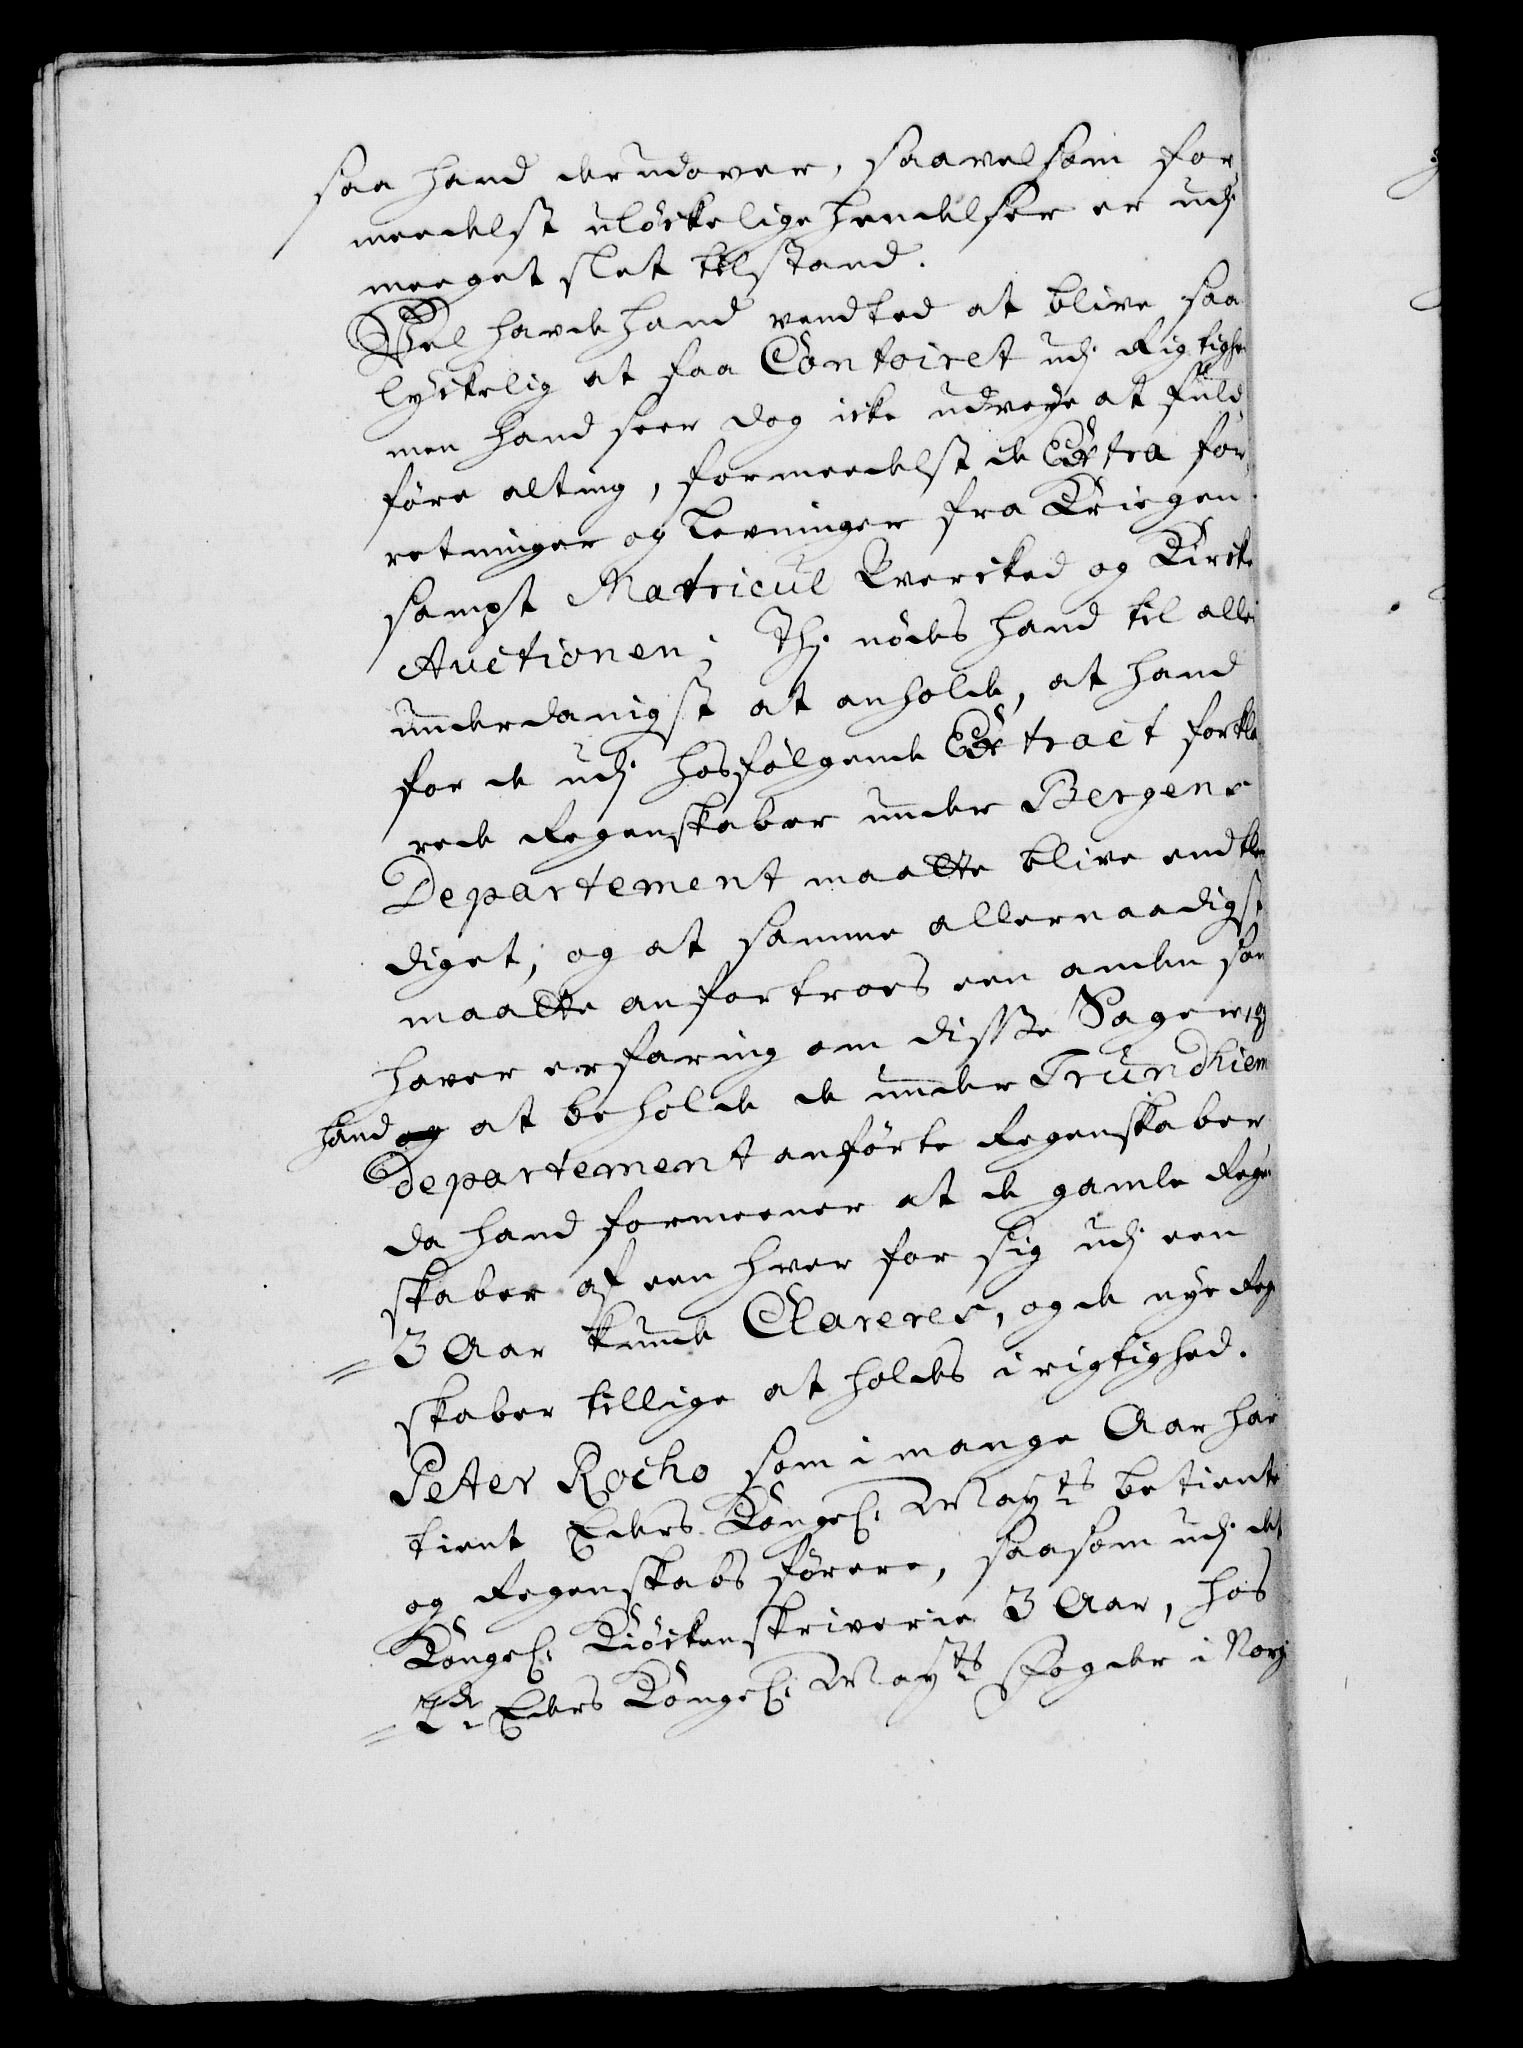 saa hand derudover, saavelsom for
meedelst ulöckelige hendelser er udj
meeget slet tilstand.
Vel havde hand vendted at blive saa
lyckelig at faa Contoiret udj Rigtighe
men hand seer dog icke udveye at fuld
före alting, formeedelst de Extra for
retninger og levninger fra Kriegen
sampt Matricul Vercked og Kircke
Auctionen; Thj nödes hand til aller
underdanigst at anholde, at hand
for de udj hosfölgende Extract forkla
rede Regenskaber under Bergens
Departement maatte blive endtle
diget; og at samme allernaadigst
maatte anfortroes een anden som
haver erfaring om disse Sager, og
hand og at beholde de under Trundhiem
Departement anförte Regenskaber
da hand formeener at de gamle Regn
skaber af een hver for sig udj een
3 Aar kunde Clareres, og de nye Reg
skaber tillige at holdes i rigtighed.
Peter Rocho som i mange Aar har
tient Eders Kongel: Mayts betiente
og Regenskabs förere, saasom udj det
Kongel: Kiöckenskriverie 3 Aar, hos
2de Eders Kongel: Mayts Fogder i Norg